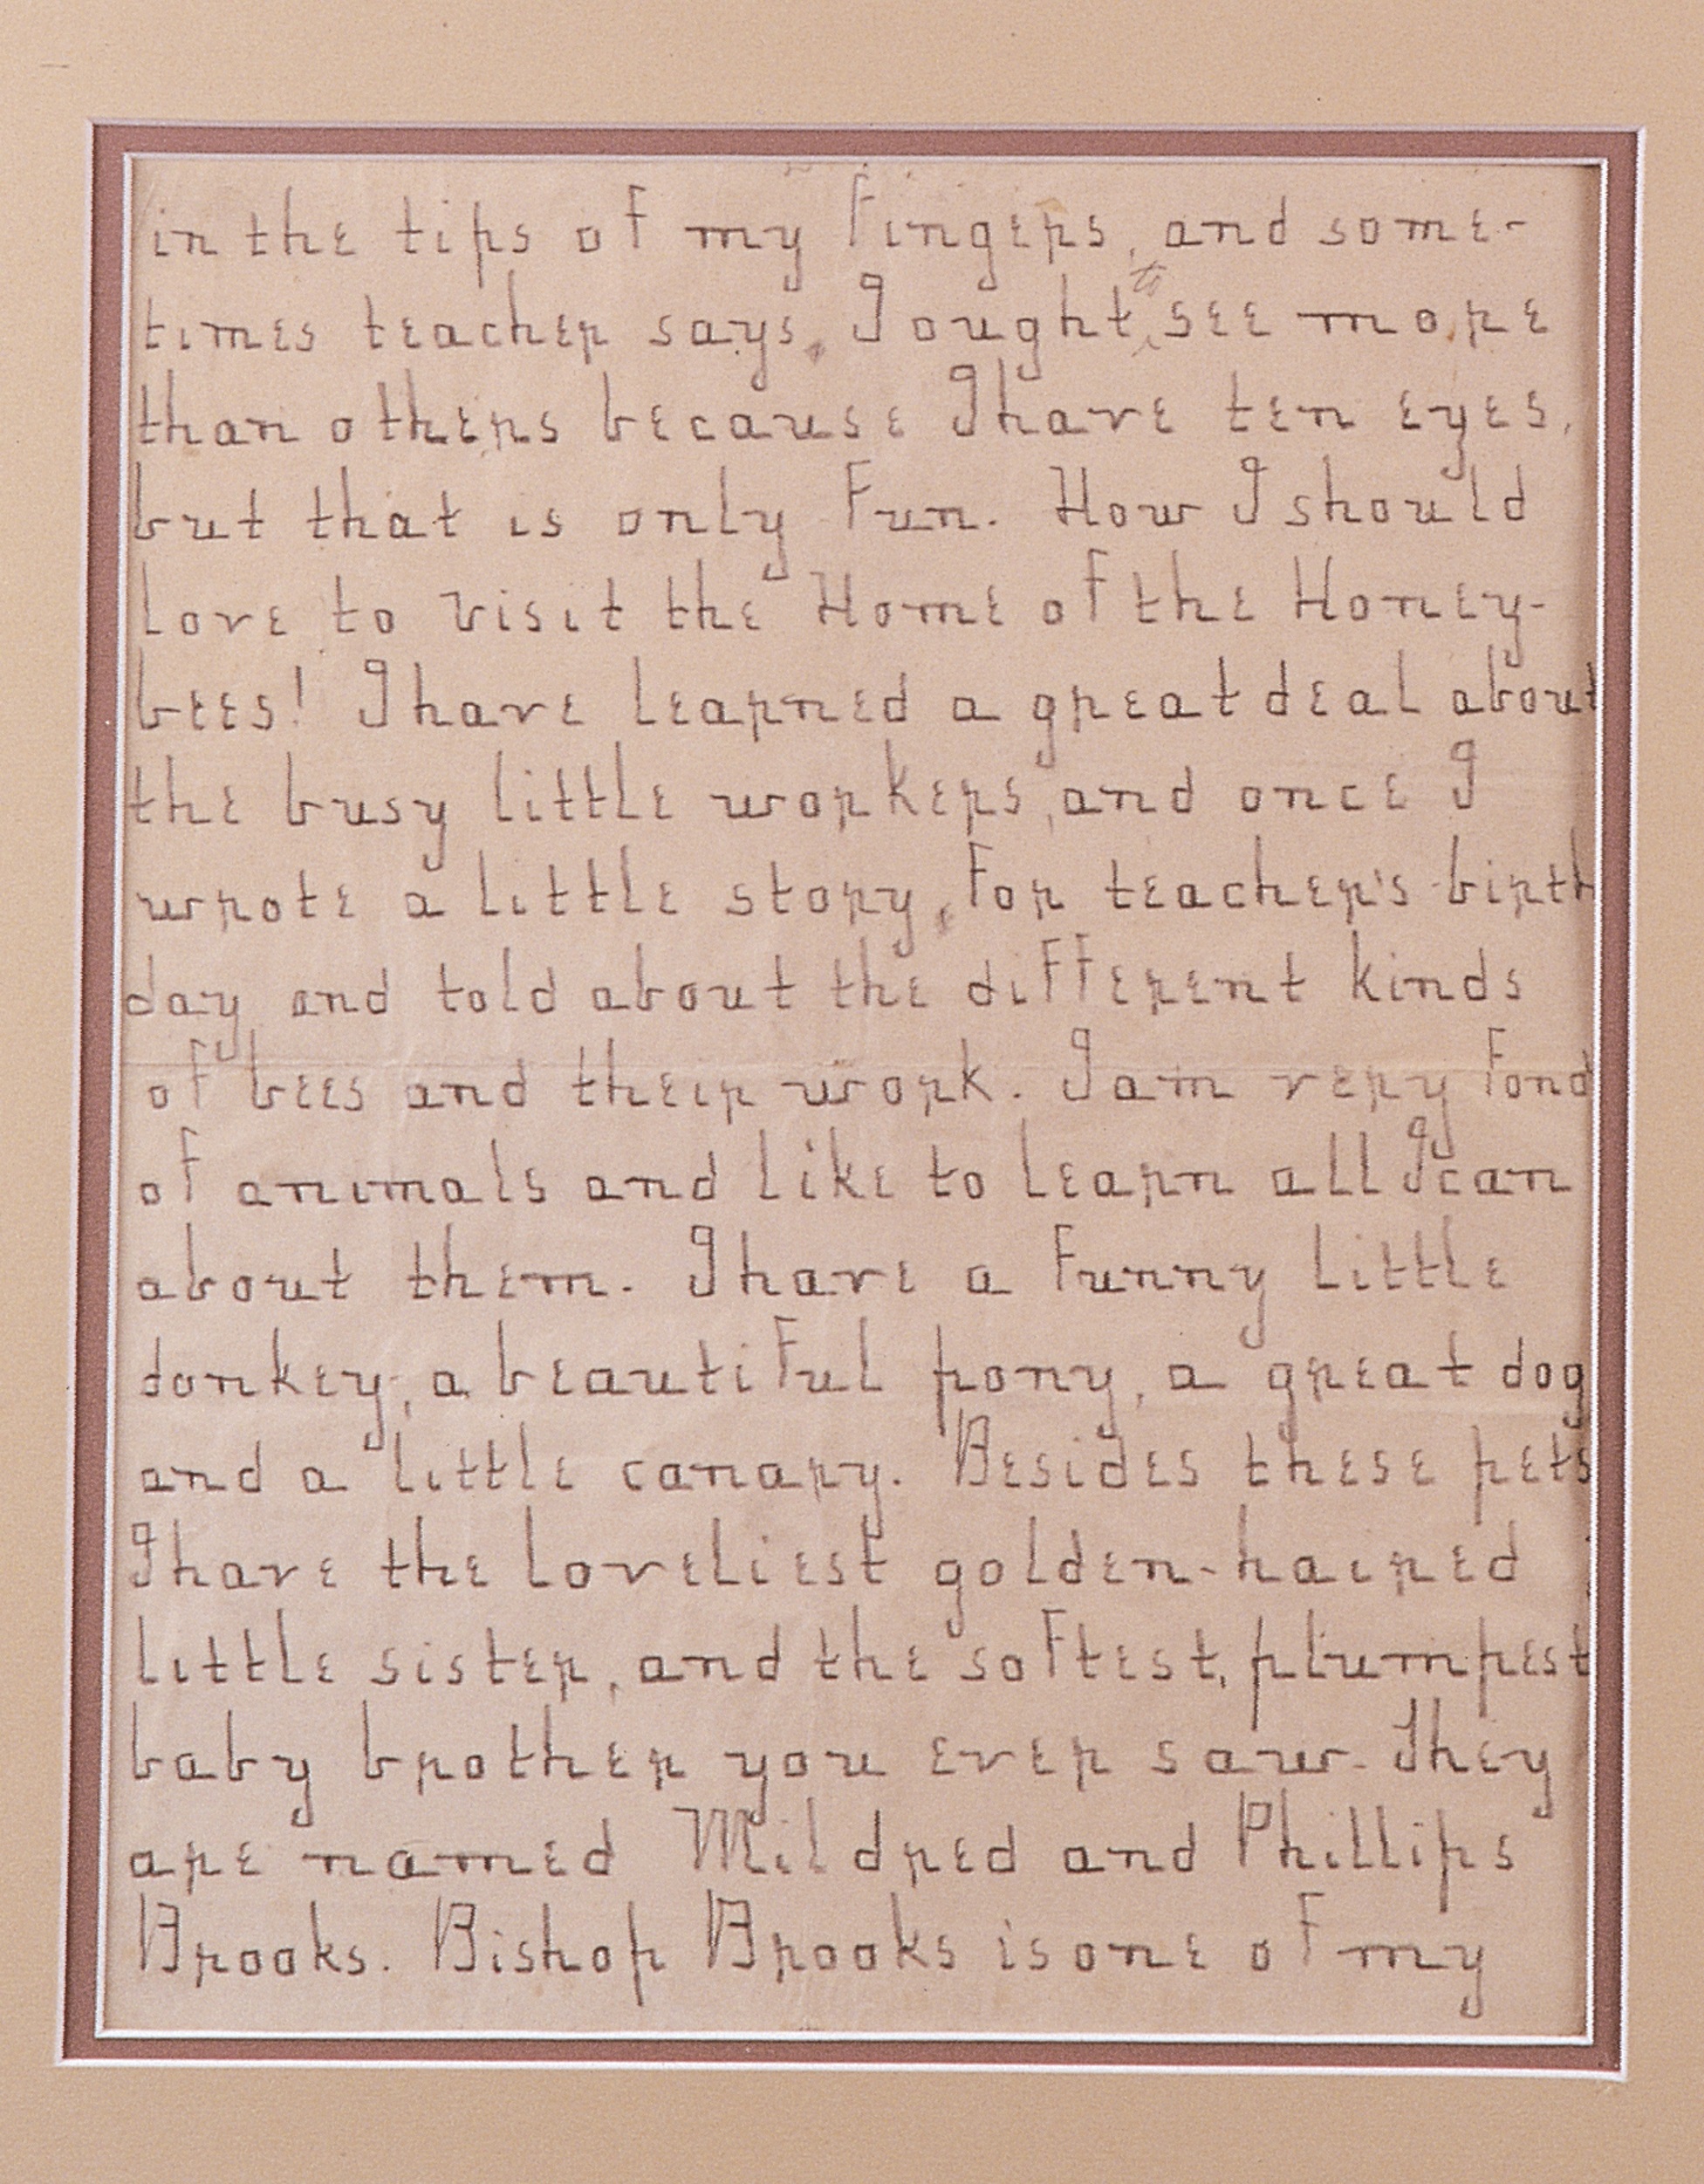 in the tips of my fingers, and some-
times teacher says, I ought to see more
than others because I have ten eyes,
but that is only fun. How I should
love to visit the Home of the Honey-
bees! I have learned a great deal about
the busy little workers, and once I
wrote a little story, for teacher's birth
day and told about the different kinds
of bees and their work. I am very fond
of animals and like to learn all I can
about them. I have a funny little
donkey, a beautiful pony, a great dog
and a little canary. Besides these pets
I have the loveliest golden-haired
little sister, and the softest, plumpest
baby brother you ever saw. They
are named Mildred and Phillips
Brooks. Bishop Brooks is one of my